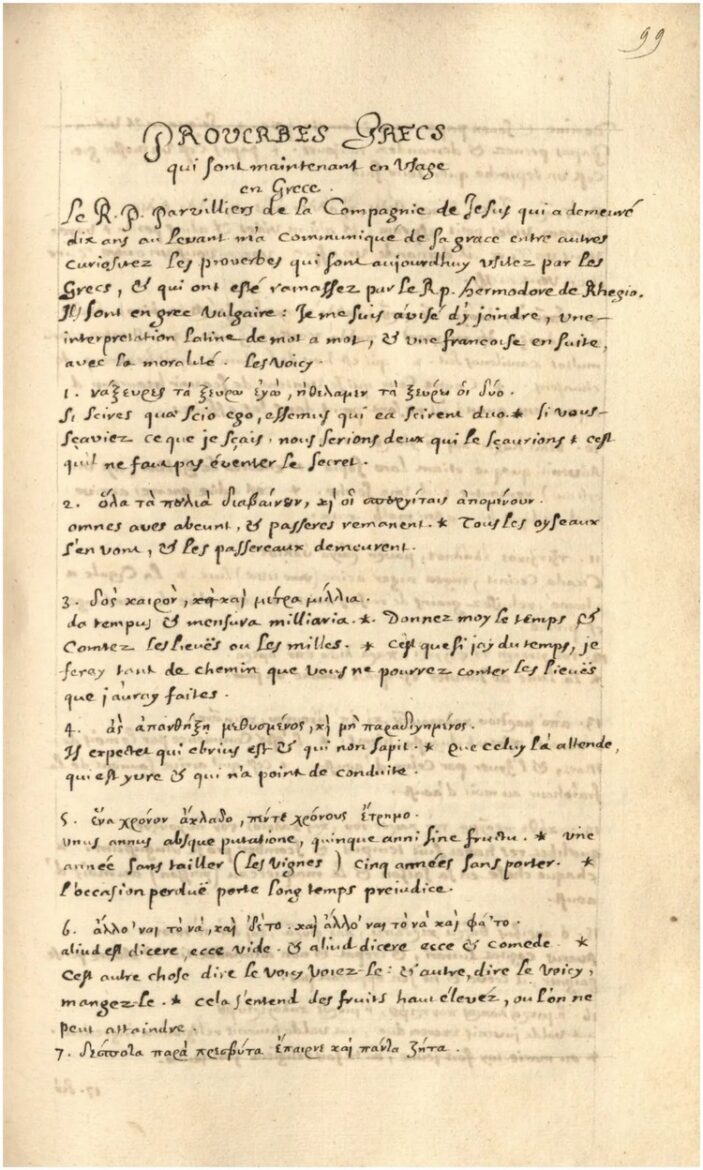 99
PROVERBES GRECS
qui sont maintenant en Vsage
en Grece.
Le R. P. Parvilliers de la Compagnie de Jesus qui a demeuré
dix ans au Levant m'a communiqué de sa grace entre autres
curiositez les proverbes qui sont aujourdhuy vsitez par les
Grecs, & qui ont esté ramassez par le R p. hermodore de Rhegio.
Ils sont en grec vulgaire: Je me suis avisé d'y joindre, une
interpretation latine de mot a mot, & vne francoise en suite,
avec la moralité. les voicy.
1. νάξευρες τὰ ξεύρω ἐγὼ, ἤθελαμεν τὰ ξεύρω οἱ δύο.
Si scires quæ scio ego, essemus qui ea scirent duo. * si vous
sçaviez ce que je sçais, nous serions deux qui le sçaurions * c'est
qu'il ne faut pas éventer le secret.
2. ὅλα τὰ πουλιὰ διαβαίνουν, κὶ οἱ σπεργίταις ἀπομένουν.
omnes aves abeunt, & passeres remanent. * Tous les oyseaux
s'en vont, & les passereaux demeurent.
3. δὸς καιρὸν, καὶ μέτρα μίλλια.
da tempus & mensura milliaria. * Donnez moy le temps &
Comtez les lieuës ou les milles. * c'est que si j'ay du temps, je
feray tant de chemin que vous ne pourrez conter les lieuës
que j'auray faites.
4. ἂς ἀπανθήξη μεθυσμένος, κὶ μὴ παραδιγημένος.
Is expectet qui ebrius est & qui non sapit. * que celuy là attende,
qui est yvre & qui n'a point de conduite.
5. ἕνα χρόνον ἀκλαδο, πέντε χρόνους ἔτρημο.
vnus annus absque putatione, quinque anni sine fructu. * vne
année sans tailler (les vignes) cinq années sans porter. *
l'occasion perduë porte long temps prejudice.
6. ἄλλο 'ναι τὸ νὰ, καὶ δέτο. καὶ ἄλλο 'ναι τὸ νὰ καὶ φά'το.
aliud est dicere, ecce vide. & aliud dicere ecce & comede. *
C'est autre chose dire le voicy voiez-le: & autre, dire le voicy,
mangez-le. * cela s'entend des fruits haut élevez, ou l'on ne
peut attaindre.
7. δέσποτα παρὰ πρεσβύτα ἔπαιρνε καὶ πάντα ζήτα.